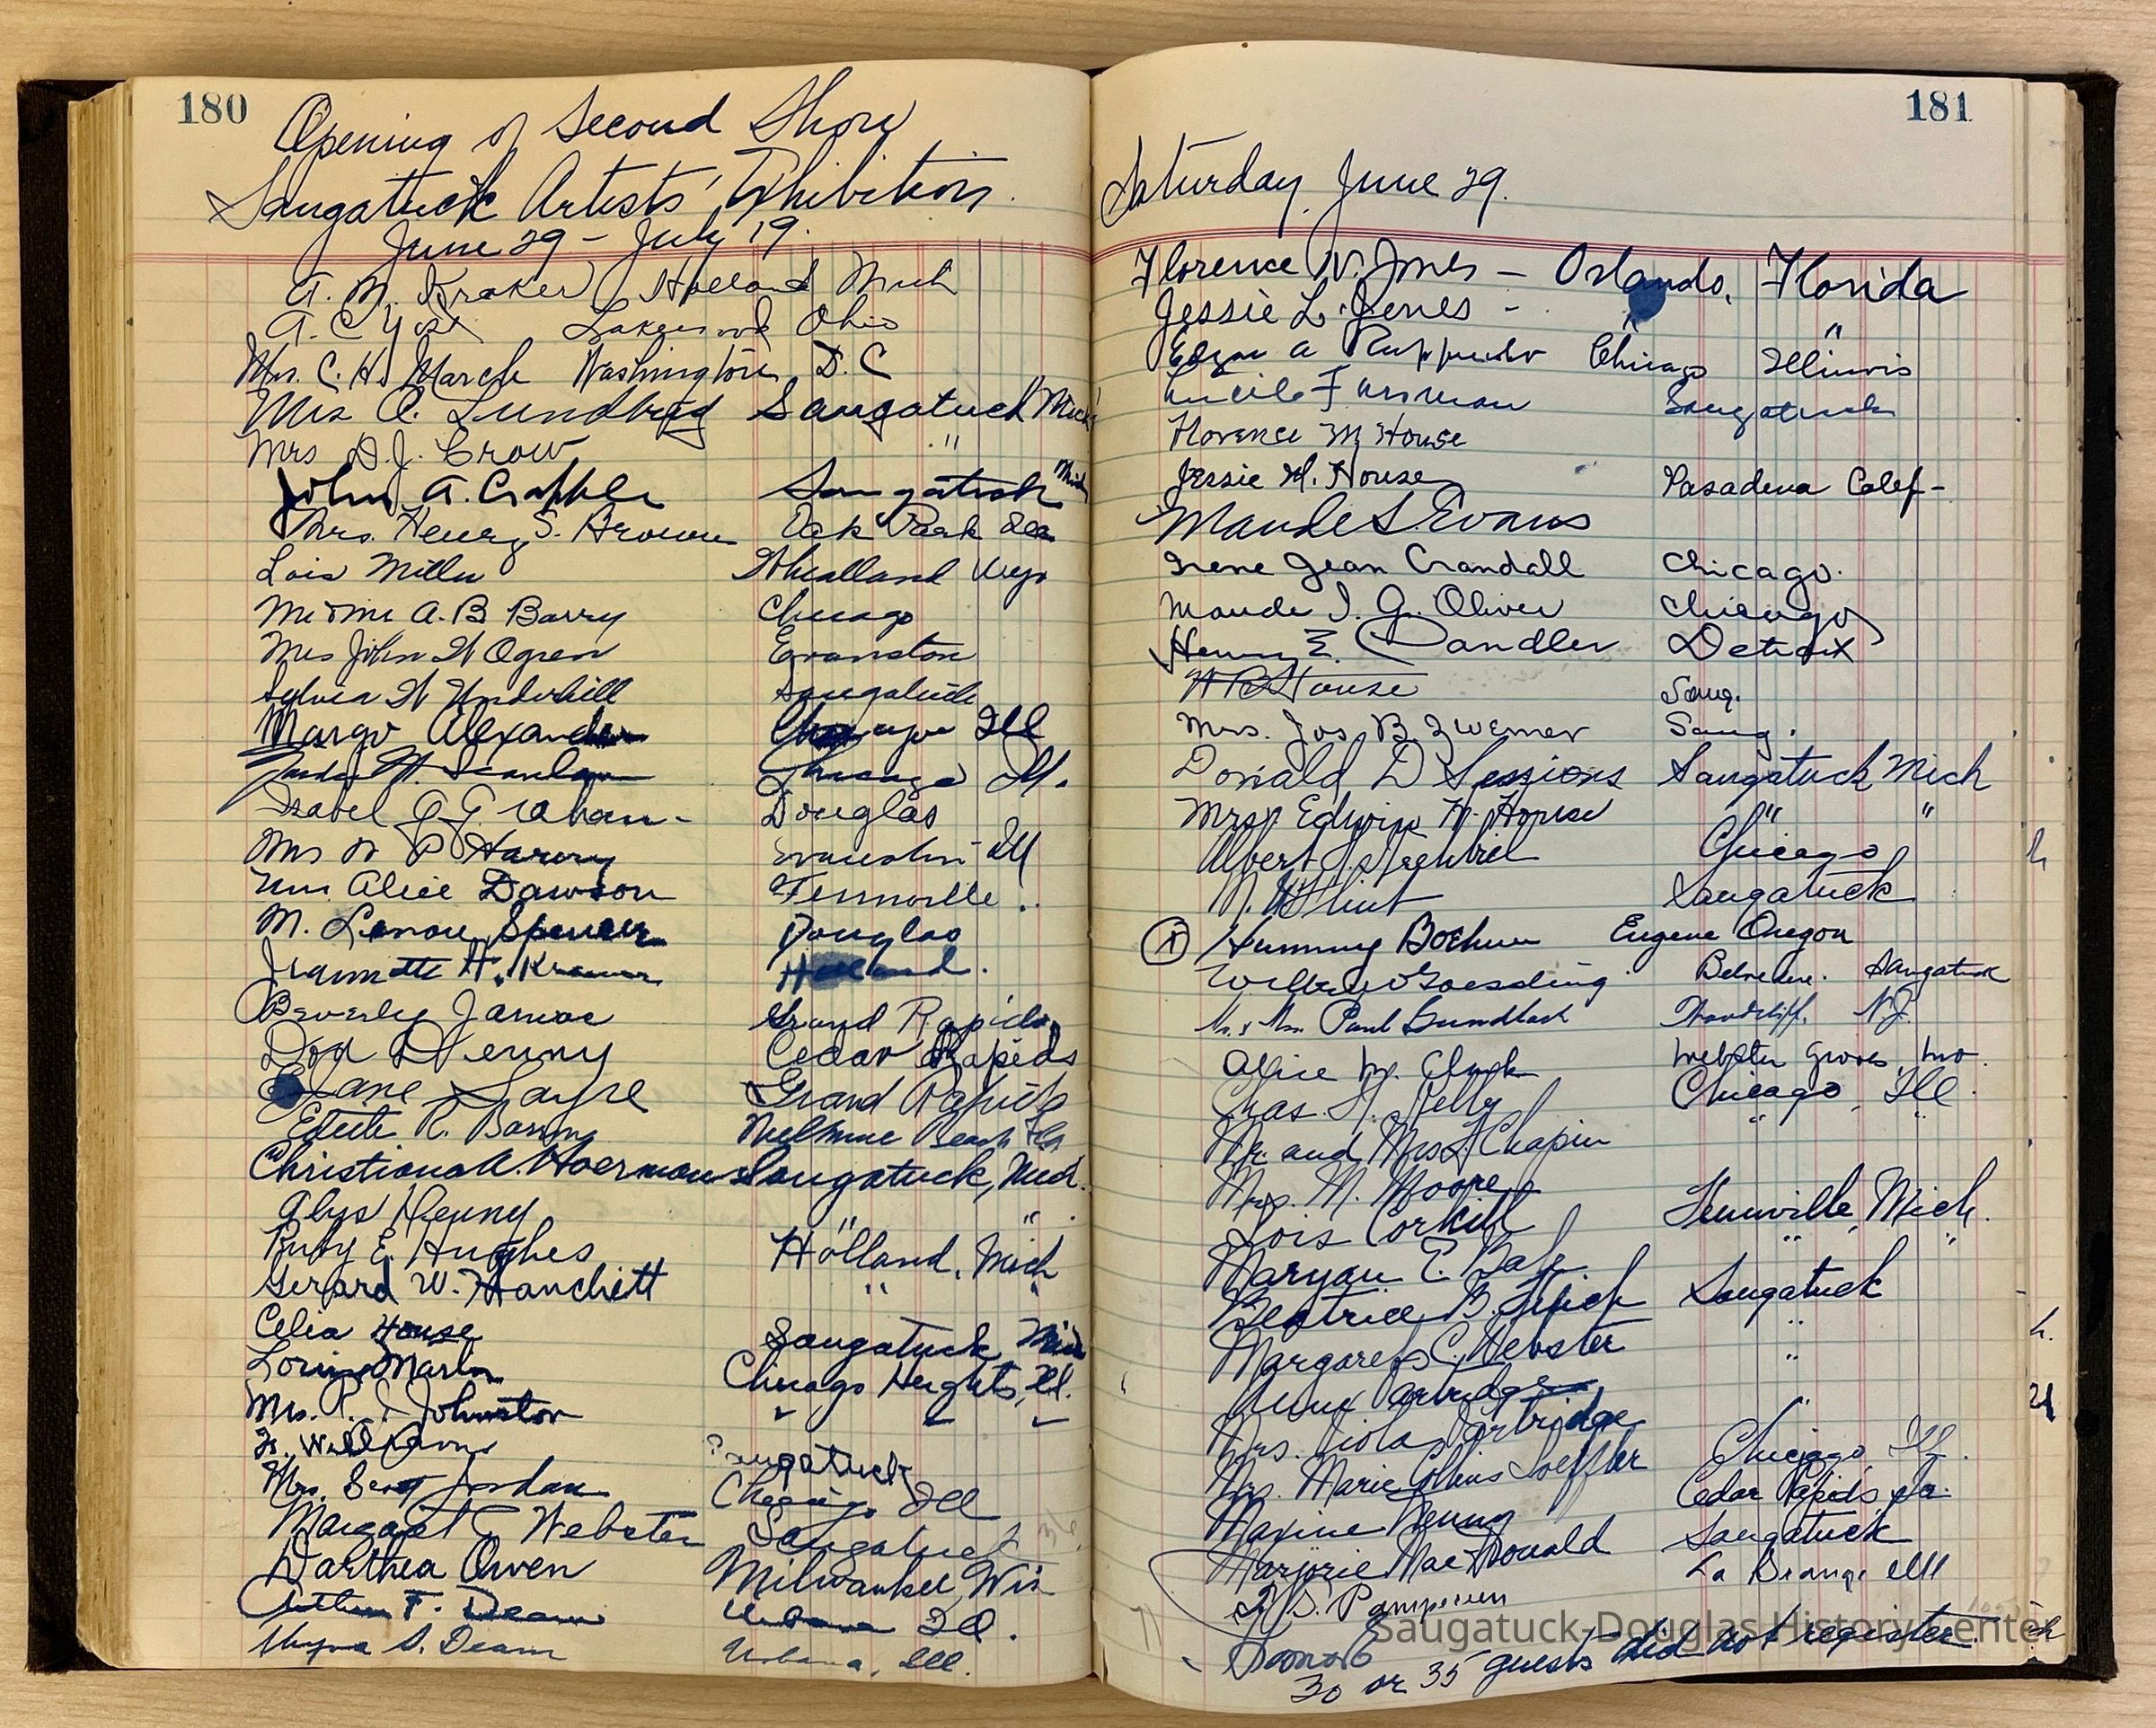 180
Opening of Second Show
Saugatuck Artists' Exhibition.
June 29 - July 19.
A. M. Kraker Holland Mich
A. C. Yost Lakewood Ohio
Mrs. C. H. March Washington, D.C
Mrs A. Lundberg Saugatuck Mich
Mrs D. J. Crow "
John A. Saugatuck Mich
Mrs. Henry S. Brown Oak Park
Lois Miller Wheatland Wyo
A. B Barry Chicago
Mrs John W Ogren Evanston
Sylvia W Underhill Saugatuck
Margo Alexander Ill
Chicago Ill.
Isabel G. Graham - Douglas
Mrs P Harvey Evanston Ill
Mrs Alice Dawson Fennville
M. Lenore Spencer Douglas
Jeannette H. Kramer Holland.
Beverly Grand Rapids
Don Denny Cedar Rapids
Elane Sayre Grand Rapids
R. Beach Fla
Christiana A. Hoerman Saugatuck, Mich.
Alys Denny " "
Ruby E. Hughes Holland, Mich
Gerard W. Hanchett " "
Celia House Saugatuck, Mich
Chicago Heights, Ill.
Mrs. Johnston " " "
Williams Saugatuck
Mrs. Jordan Chicago Ill
Margaret C Webster Saugatuck
Darthea Owen Milwaukee, Wis
F. Deam Urbana Ill.
Thyra S. Deam Urbana, Ill.
181
Saturday, June 29.
Florence W. Jones - Orlando, Florida
Jessie L. Jones - " "
a Chicago Illinois
Lucile Saugatuck
Florence M House
Jessie M. House Pasadena Calif-
Maude S. Evans
Irene Jean Crandall Chicago.
Maude I. G. Oliver Chicago
Henry E. Candler Detroit
House Saug.
Mrs. Jos. B. Zwemer Saug.
Donald D Sessions Saugatuck Mich
Mrs Edwin House " "
Albert Chicago
Flint Saugatuck
Eugene Oregon
Belvedere. Saugatuck
Paul Gundlach N.J.
Alice M. Webster Groves, Mo
Chas. Kelly Chicago, Ill.
Mr. and Mrs Chapin " "
Mrs. M. Moore
Lois Corkill Fennville, Mich.
Maryan E. " "
Beatrice B. Saugatuck
Margaret C. Webster "
Partridge "
Mrs. Viola Partridge "
Mrs. Marie Collins Loeffler Chicago, Ill.
Maxine Denny Cedar Rapids, Ia.
Marjorie MacDonald Saugatuck
La Grange Ill
30 or 35 guests did not register.
Saugatuck-Douglas History Center